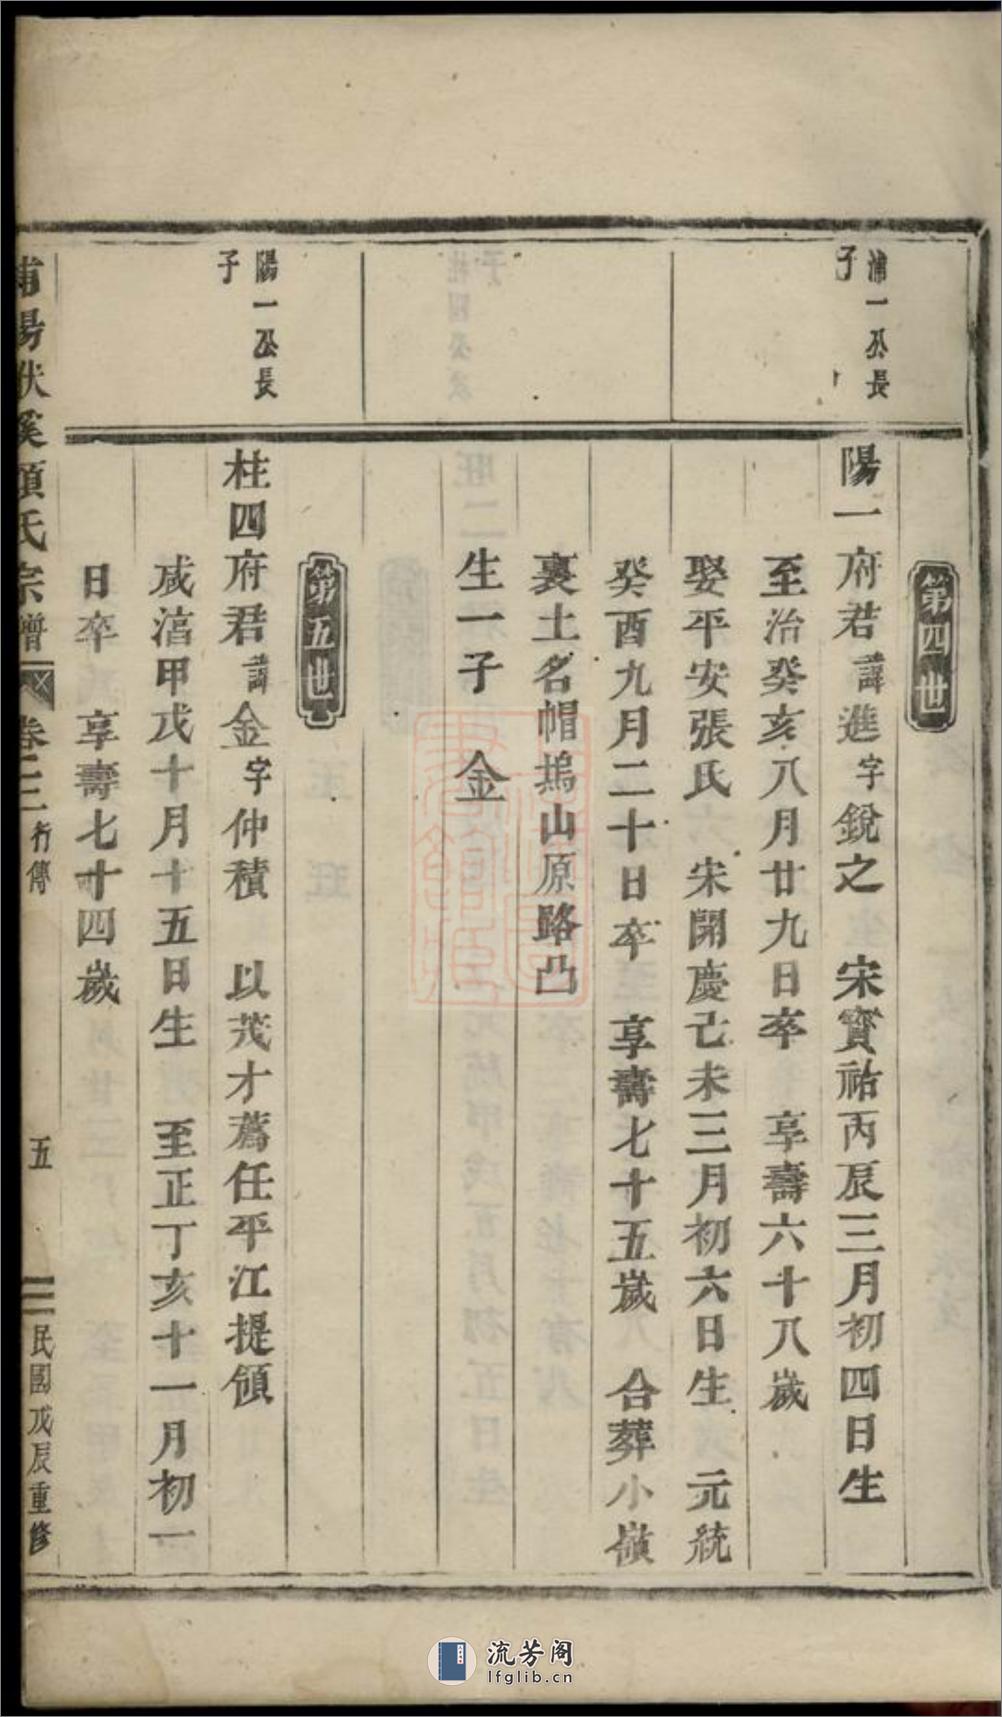 第四世
浦一公長
子
陽一府君諱進字銳之 宋寳祐丙辰三月初四日生
至治癸亥八月廿九日卒 享壽六十八歲
娶平安張氏 宋開慶己未三月初六日生 元統
癸酉九月二十日卒 享壽七十五歲 合葬小嶺
裏土名帽塢山原路凸
生一子 金
第五世
陽一公長
子
柱四府君諱金字仲積 以茂才薦任平江提領
咸淳甲戌十月十五日生 至正丁亥十一月初一
日卒 享壽七十四歲
浦陽伏溪項氏宗譜 卷二 行傳 五 民國戊辰重修
流芳阁
lfglib.cn